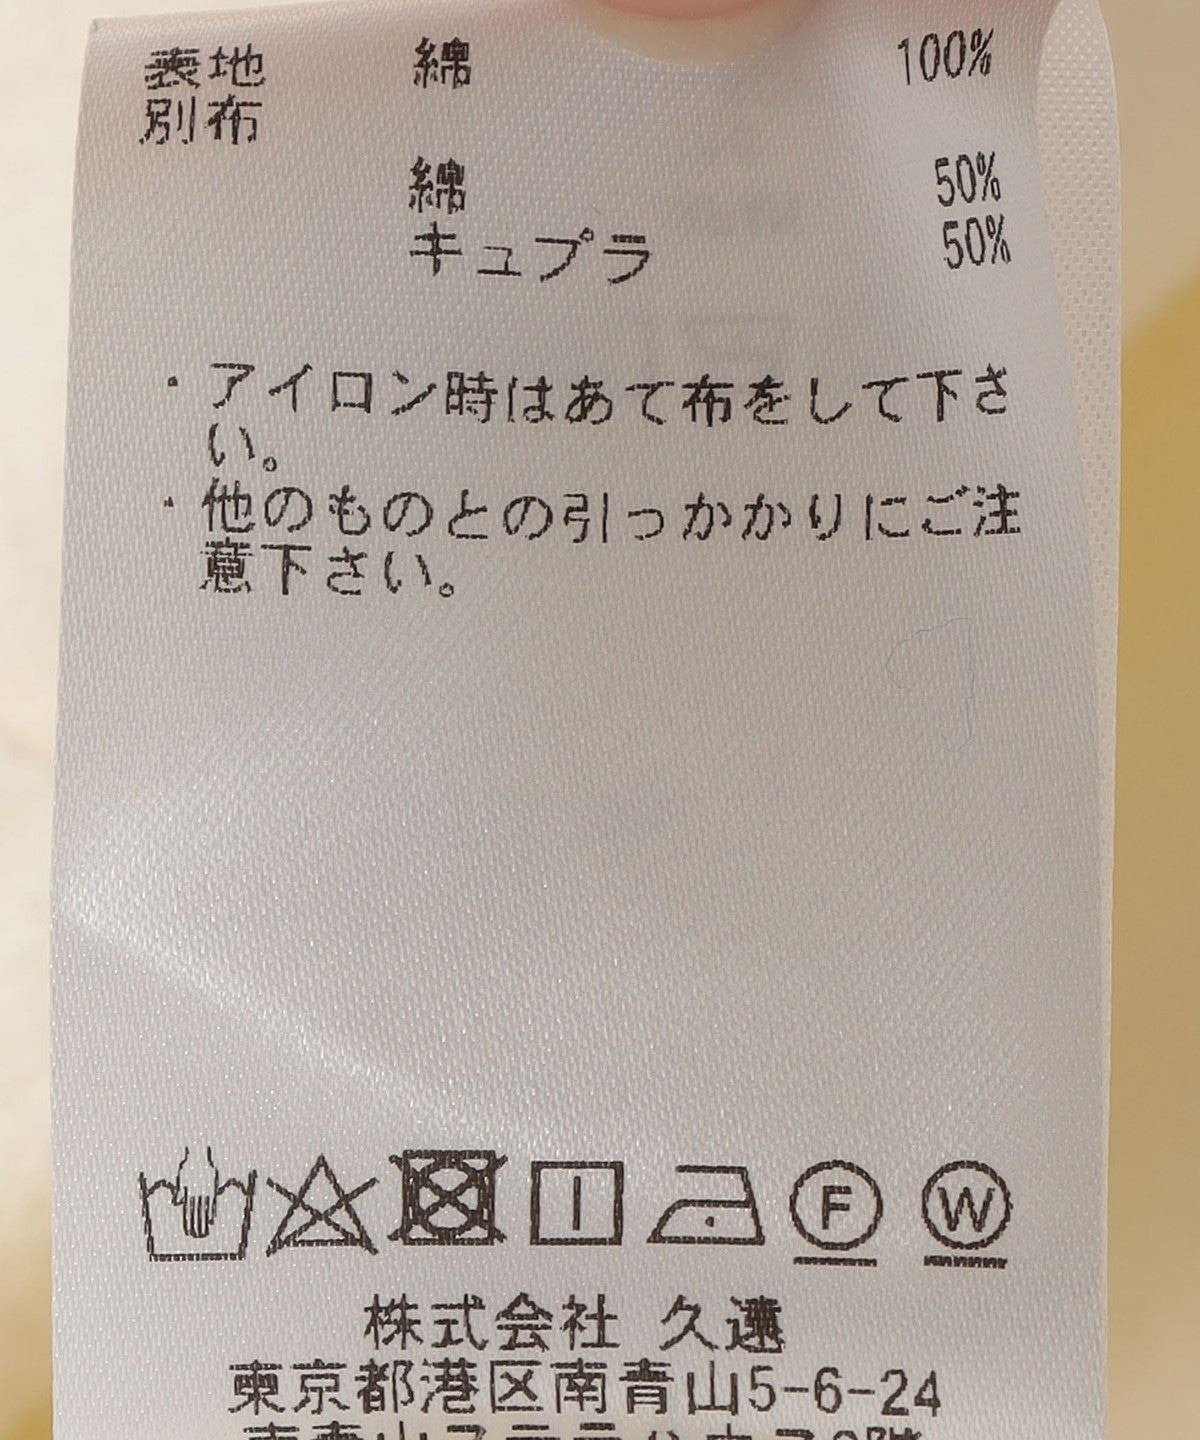 表地 綿 100%
別布
綿 50%
キュプラ 50%
・アイロン時はあて布をして下さ
い。
・他のものとの引っかかりにご注
意下さい。
F W
株式会社 久遠
東京都港区南青山5-6-24